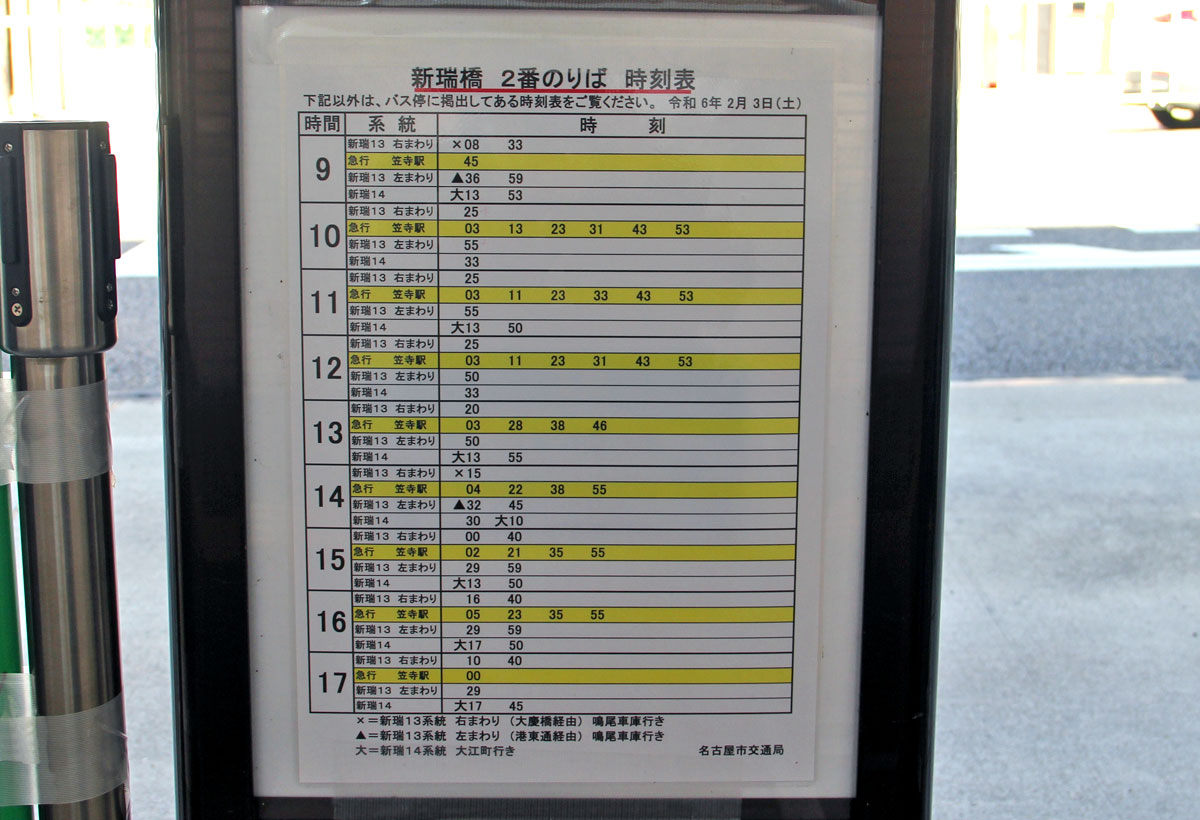 新瑞橋 2番のりば 時刻表
下記以外は、バス停に掲出してある時刻表をご覧ください。 令和 6年 2月 3日(土)
時間 系統 時刻
9
新瑞13 右まわり ×08 33
急行 笠寺駅 45
新瑞13 左まわり ▲36 59
新瑞14 大13 53
10
新瑞13 右まわり 25
急行 笠寺駅 03 13 23 31 43 53
新瑞13 左まわり 55
新瑞14 33
11
新瑞13 右まわり 25
急行 笠寺駅 03 11 23 33 43 53
新瑞13 左まわり 55
新瑞14 大13 50
12
新瑞13 右まわり 25
急行 笠寺駅 03 11 23 31 43 53
新瑞13 左まわり 50
新瑞14 33
13
新瑞13 右まわり 20
急行 笠寺駅 03 28 38 46
新瑞13 左まわり 50
新瑞14 大13 55
14
新瑞13 右まわり ×15
急行 笠寺駅 04 22 38 55
新瑞13 左まわり ▲32 45
新瑞14 30 大10
15
新瑞13 右まわり 00 40
急行 笠寺駅 02 21 35 55
新瑞13 左まわり 29 59
新瑞14 大13 50
16
新瑞13 右まわり 16 40
急行 笠寺駅 05 23 35 55
新瑞13 左まわり 29 59
新瑞14 大17 50
17
新瑞13 右まわり 10 40
急行 笠寺駅 00
新瑞13 左まわり 29
新瑞14 大17 45
×=新瑞13系統 右まわり (大慶橋経由) 鳴尾車庫行き
▲=新瑞13系統 左まわり (港東通経由) 鳴尾車庫行き
大=新瑞14系統 大江町行き 名古屋市交通局